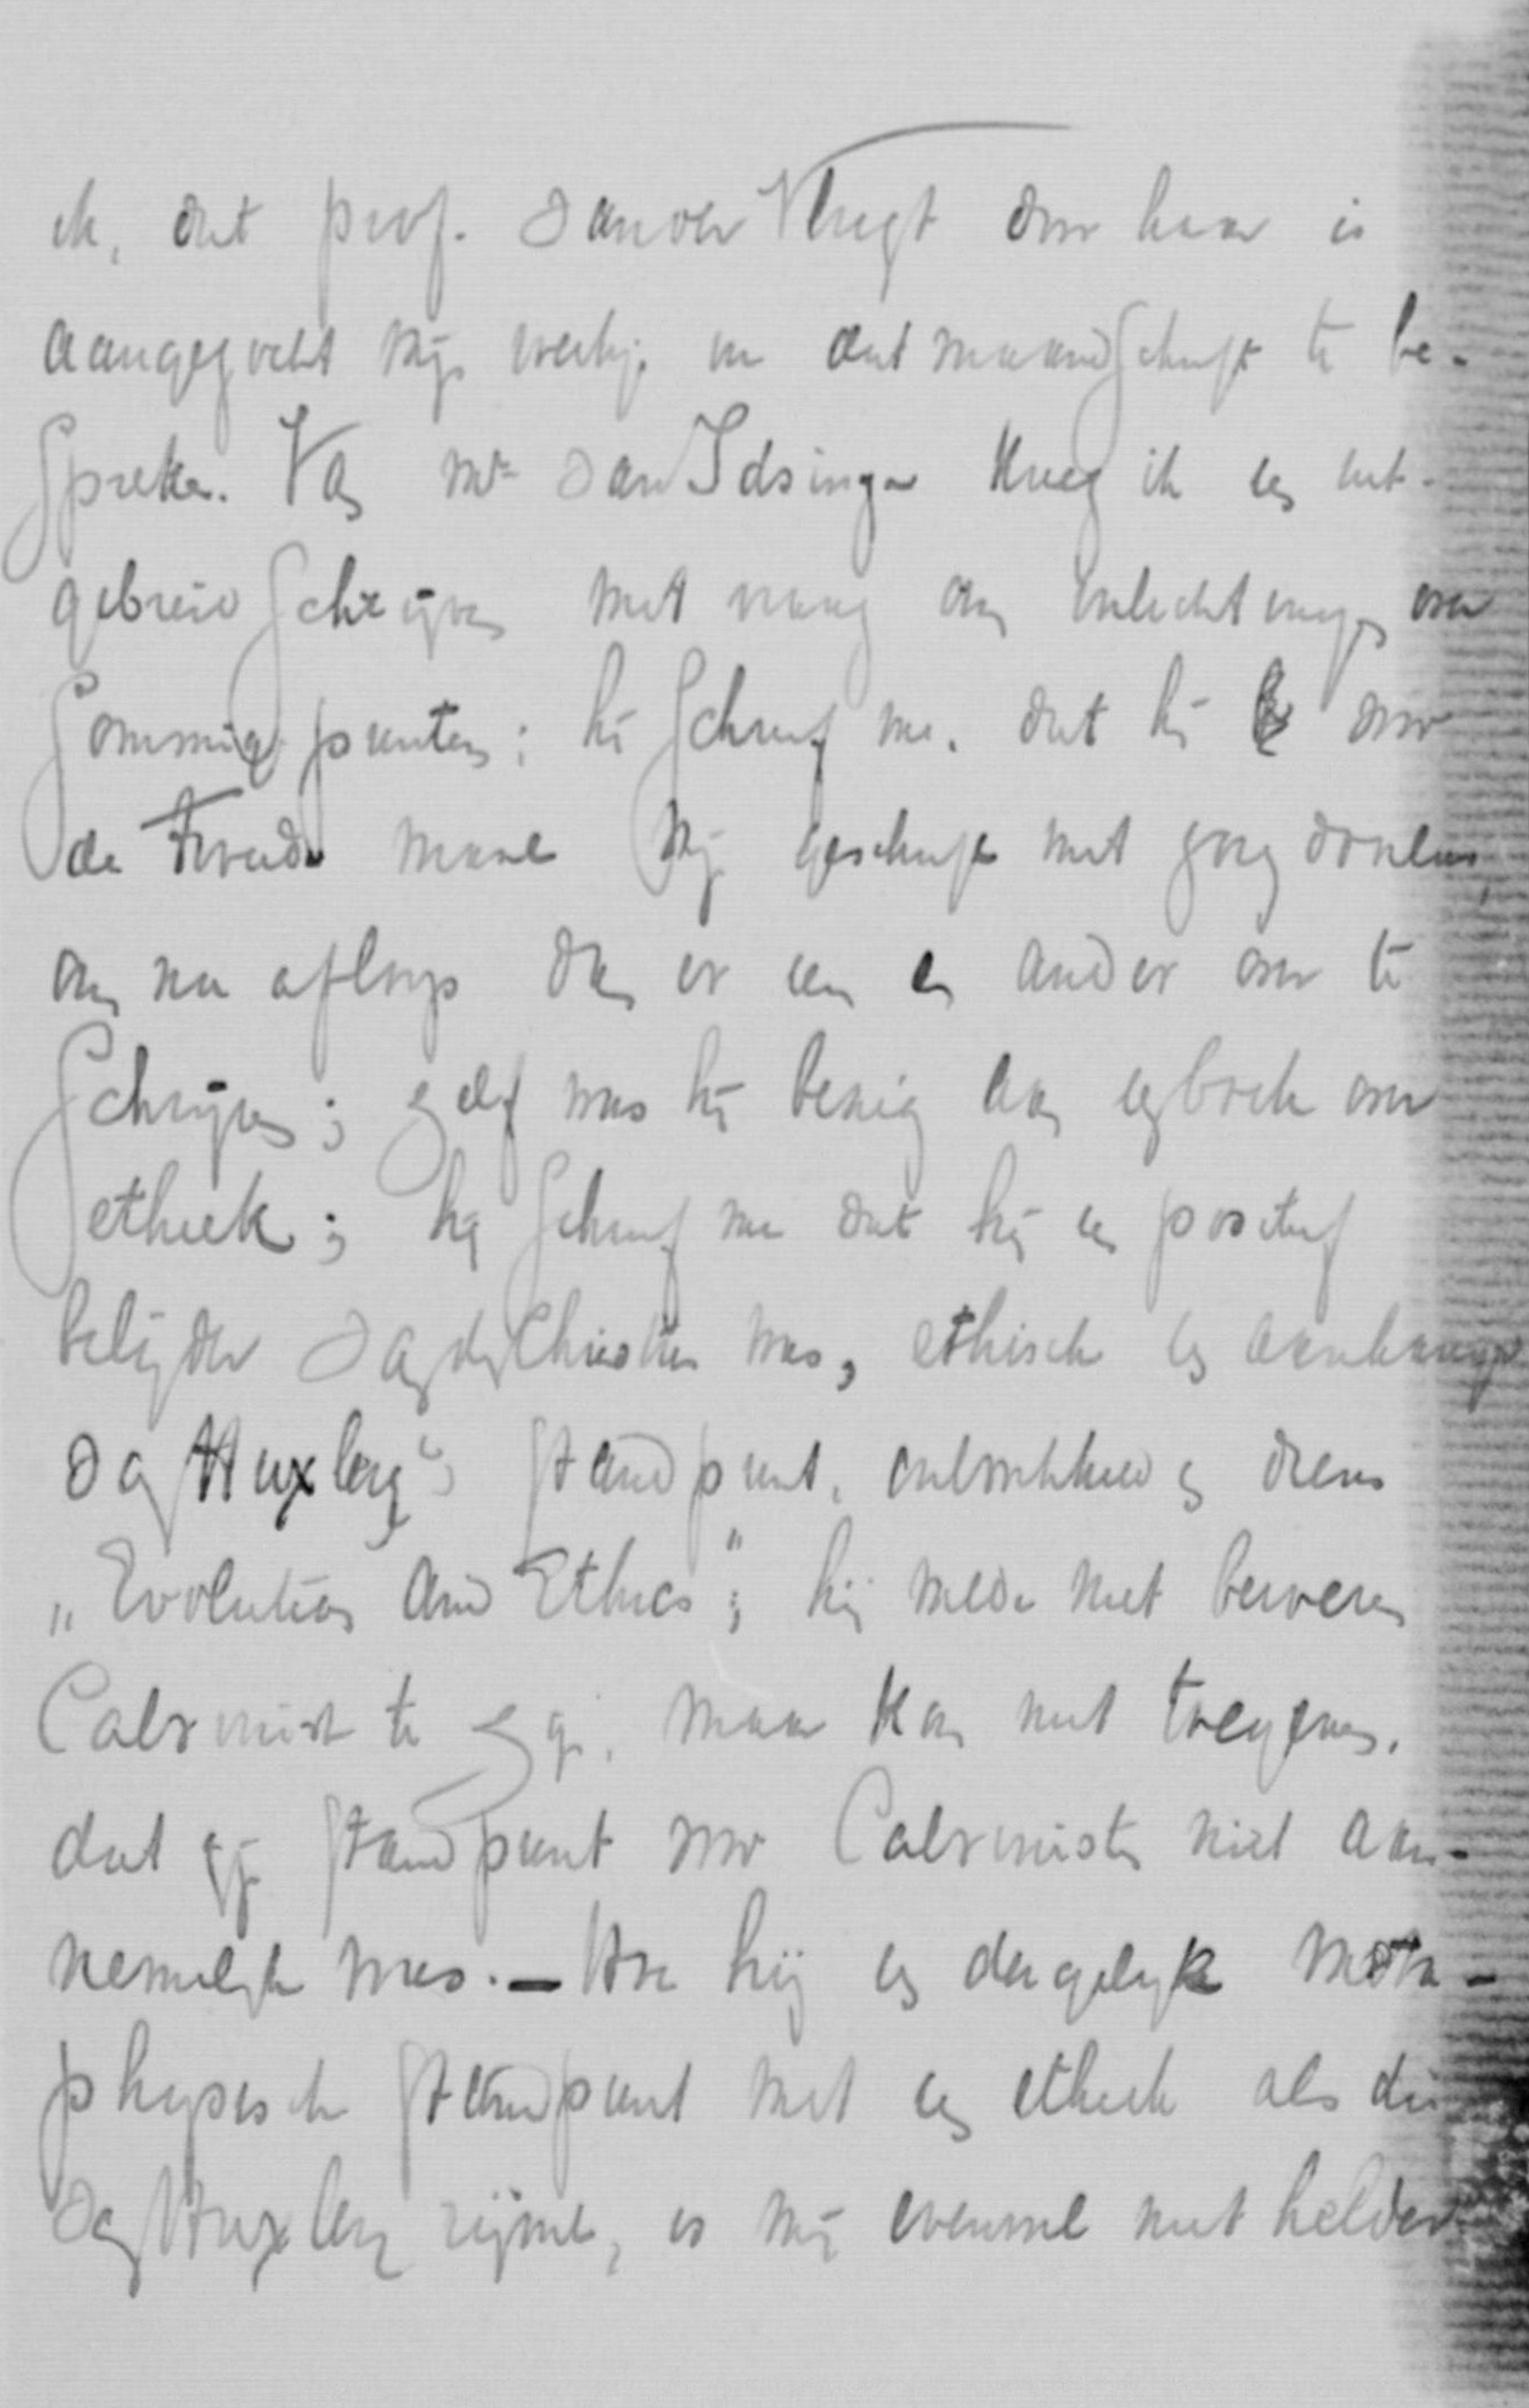 ik, dat prof. van der Vlugt door haar is
aangezocht mijn werkje in dat maandschrift te be-
spreken. Van Mr van Idsinga kreeg ik een uit-
gebreid schrijven met vraag om inlichtingen over
sommige punten; hij schreef me, dat hij door
de tweede maal mijn geschrift met zorg doorlas,
om na afloop dan er een en ander over te
schrijven; zelf was hij bezig aan een boek over
ethiek; hij schreef me dat hij een positief
belijder van den Christus was, ethisch een aanhanger
van Huxley's standpunt, ontwikkeld in diens
„Evolution and Ethics"; hij wilde niet beweren
Calvinist te zijn, maar kon niet toegeven,
dat zijn standpunt voor Calvinisten niet aan-
nemelijk was. — Hoe hij een dergelijk meta-
physisch standpunt met een ethiek als die
van Huxley rijmt, is mij evenwel niet helder